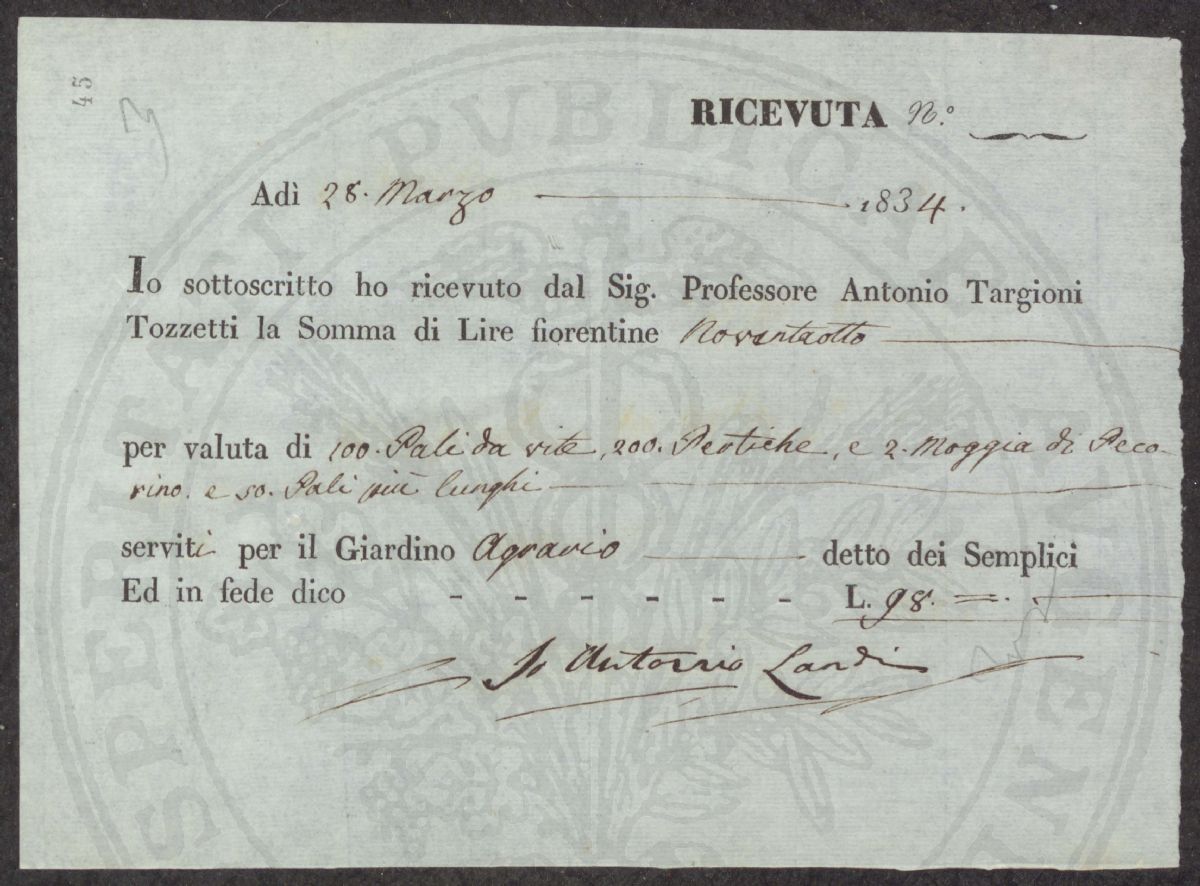 45
RICEVUTA N.º
Adì 28. Marzo 1834.
Io sottoscritto ho ricevuto dal Sig. Professore Antonio Targioni
Tozzetti la Somma di Lire fiorentine Novantaotto
per valuta di 100. Pali da vite, 200. Pertiche, e 2. Moggia di Peco-
rino. e 50. Pali più lunghi
serviti per il Giardino Agrario detto dei Semplici
Ed in fede dico - - - - - - L. 98. =.
Io Antonio Landi